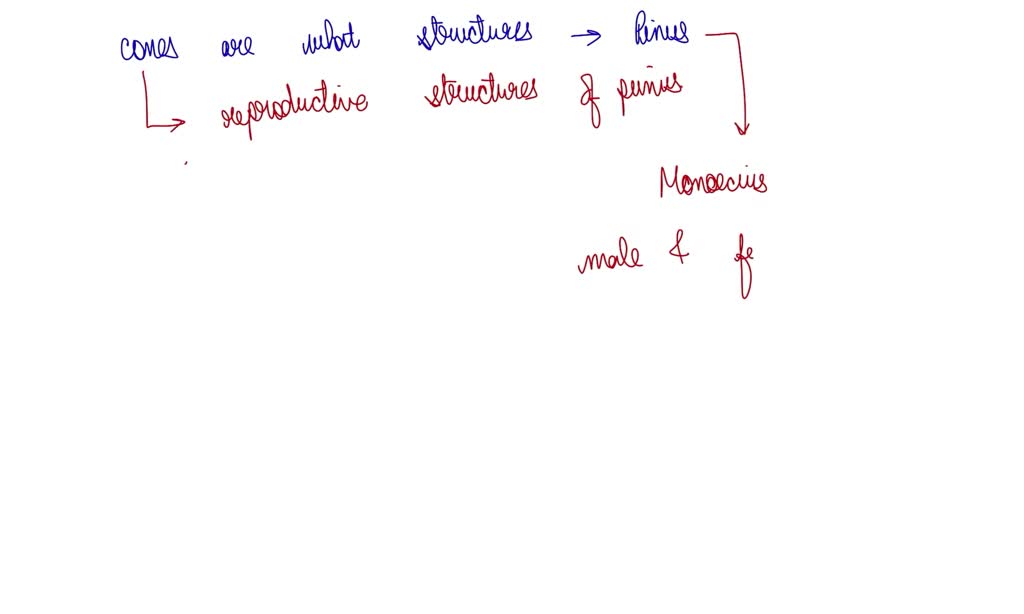 cones are what structures → Pinus
reproductive structures of pinus
Monoecius
male & fe